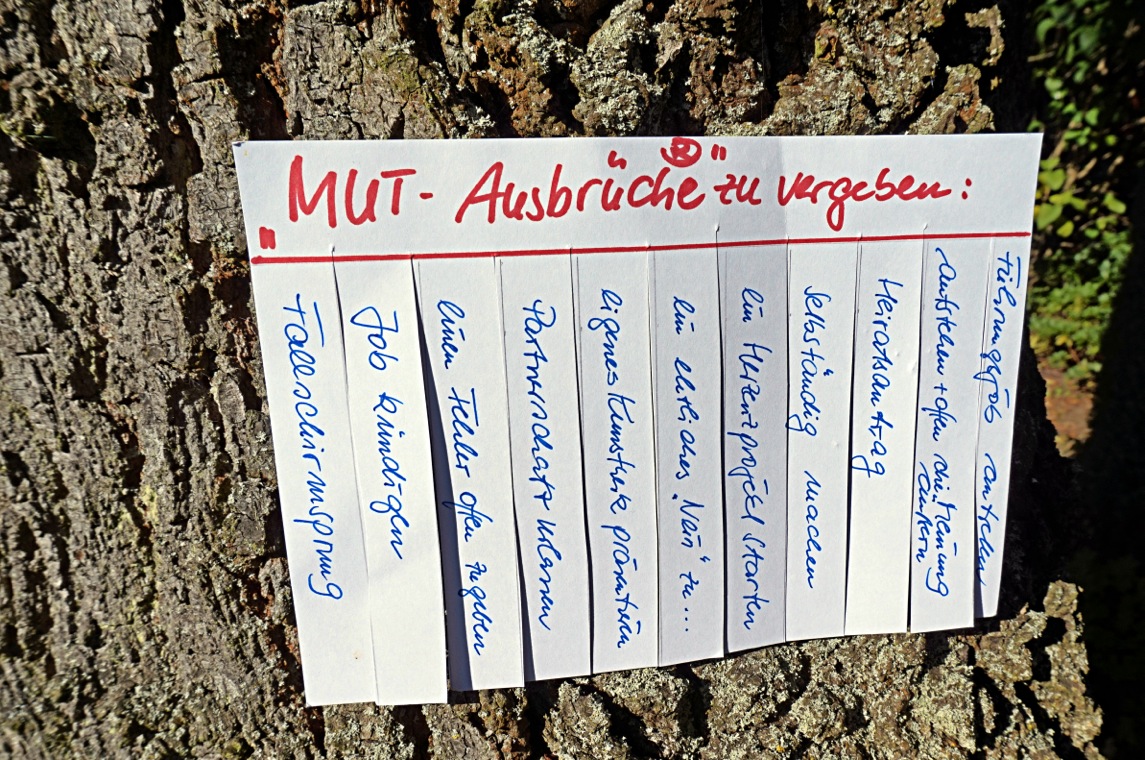 "MUT- Ausbrüche" zu vergeben:
Fallschirmsprung
Job kündigen
einen Fehler offen zugeben
Partnerschaft
eigenes Kunstwerk
ein ehrliches "Nein" zu...
ein Herzensprojekt starten
Selbständig machen
Heiratsantrag
Aufstehen + offen die Meinung
äußern
Führungsjob antreten